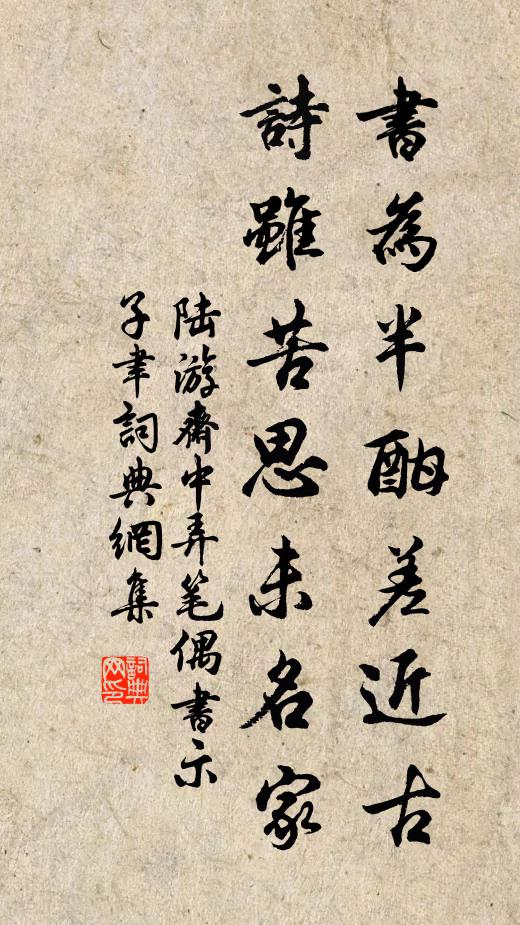 書為半酣差近古
詩雖苦思未名家
陆游齋中弄笔偶書示
子聿詞典網集
詞典
网印